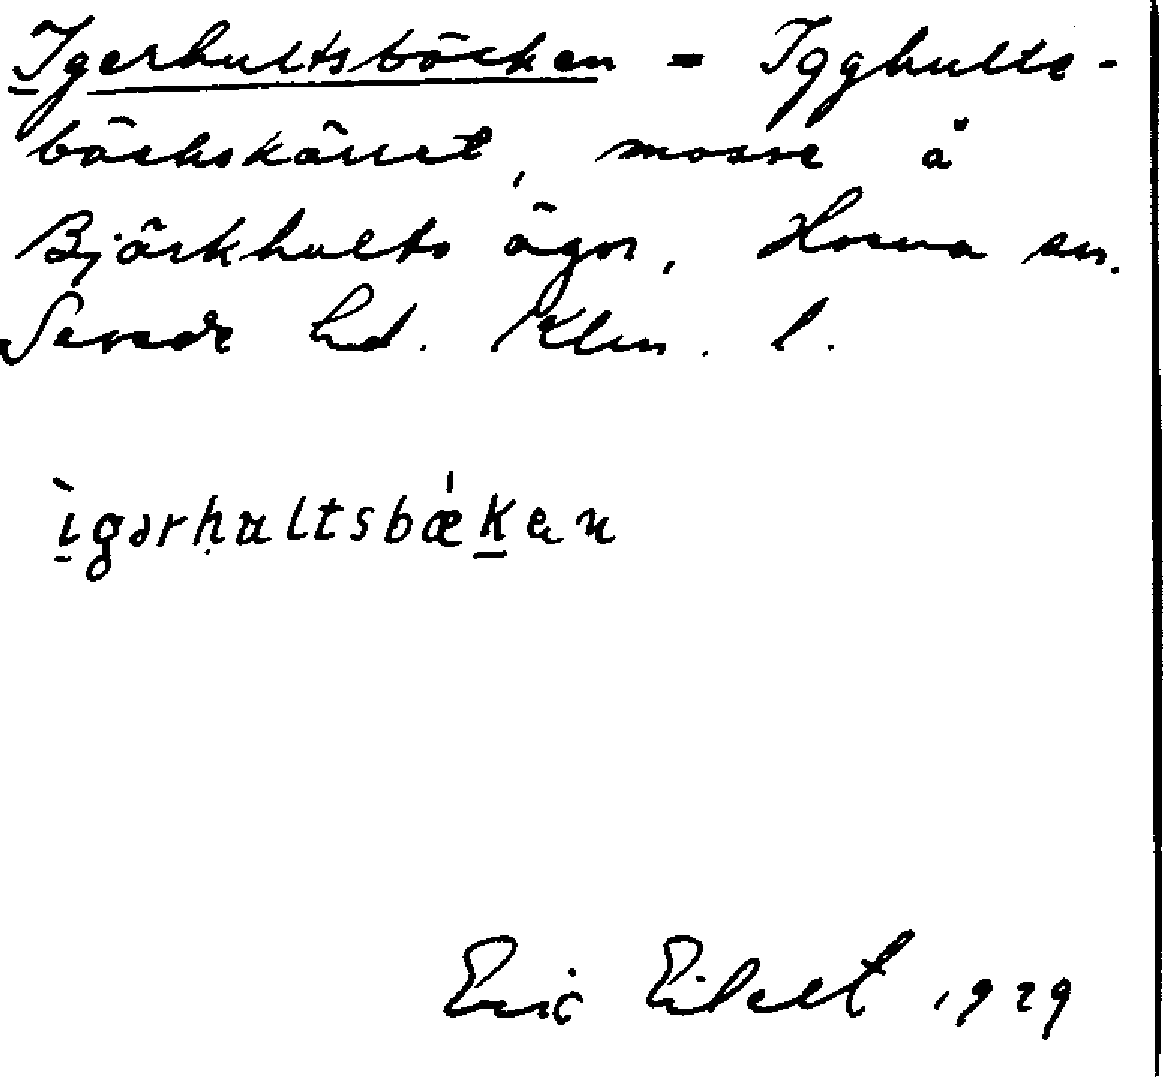 Igerhultsbäcken = Igghults-
bäckskärret, mosse å
Björkhults ägor, Horna sn.
Sevede hd. Klm. l.
ìgərhultsbǽken
Eric 1929